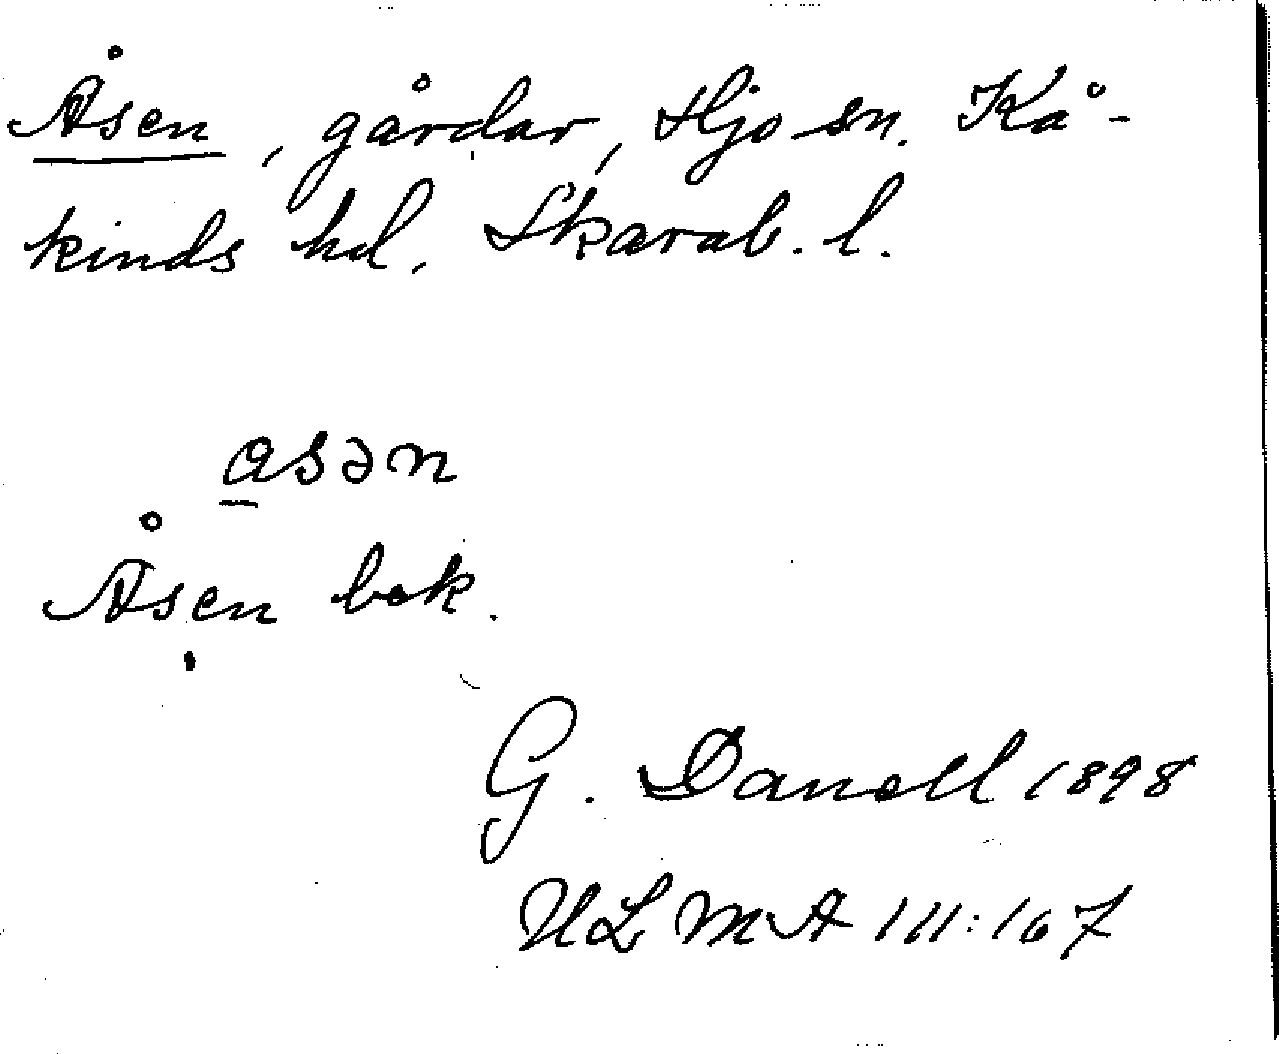 Åsen, gårdar, Hjo sn. Kå-
kinds hd. Skarab. l.
asən
Åsen bek.
G. Danell 1898
ULMA 111:167